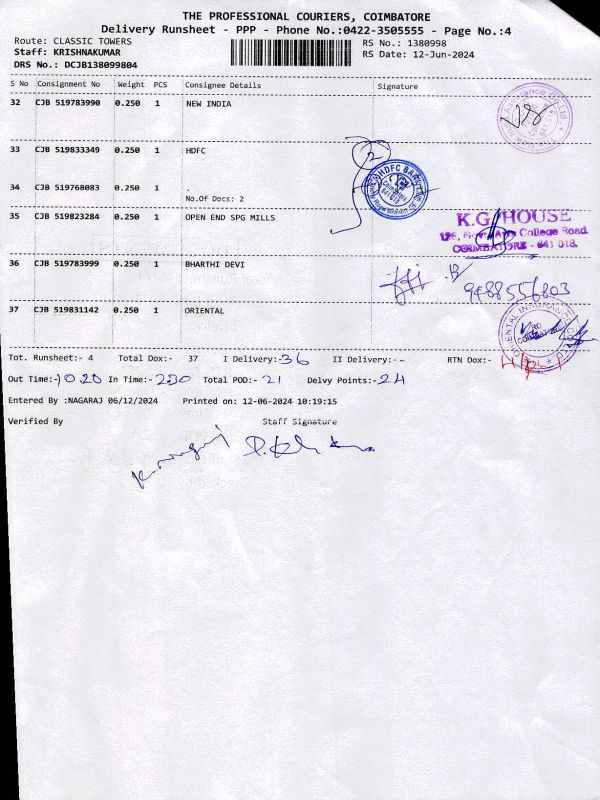 THE PROFESSIONAL COURIERS, COIMBATORE
Delivery Runsheet - PPP - Phone No.:0422-3505555 - Page No.:4
Route: CLASSIC TOWERS
Staff: KRISHNAKUMAR
DRS No.: DCJB138099804
RS No.: 1380998
RS Date: 12-Jun-2024
S No Consignment No Weight PCS Consignee Details Signature
32 CJB 519783990 0.250 1 NEW INDIA
33 CJB 519833349 0.250 1 HDFC
2
HDFC BANK
34 CJB 519768083 0.250 1 .
No.Of Docs: 2
35 CJB 519823284 0.250 1 OPEN END SPG MILLS
K.G. HOUSE
College Road
COIMBATORE - 641 018.
36 CJB 519783999 0.250 1 BHARTHI DEVI
9488556803
37 CJB 519831142 0.250 1 ORIENTAL
ORIENTAL INSURANCE
Tot. Runsheet:- 4 Total Dox:- 37 I Delivery:-36 II Delivery:-- RTN Dox:-
Out Time:-1020 In Time:-230 Total POD:-21 Delvy Points:-24
Entered By :NAGARAJ 06/12/2024 Printed on: 12-06-2024 10:19:15
Verified By Staff Signature